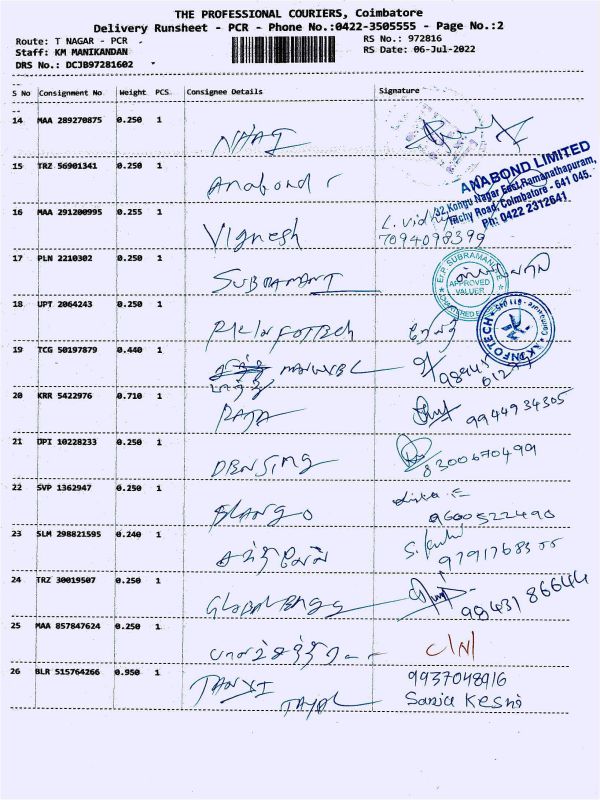 THE PROFESSIONAL COURIERS, Coimbatore
Delivery Runsheet - PCR - Phone No.:0422-3505555 - Page No.:2
Route: T NAGAR - PCR
RS No.: 972816
Staff: KM MANIKANDAN
RS Date: 06-Jul-2022
DRS No.: DCJB97281602
S No Consignment No Weight PCS. Consignee Details Signature
14 MAA 289270875 0.250 1
NHAI
15 TRZ 56901341 0.250 1
Anabond
ANABOND LIMITED
32, Kongu Nagar East, Ramanathapuram,
Trichy Road, Coimbatore - 641 045.
Ph: 0422 2312641
16 MAA 291200995 0.255 1
Vignesh
L. Vidhya
7094098399
17 PLN 2210302 0.250 1
SUBRAMANI
Er.P. SUBRAMANI
APPROVED
VALUER
CHARTERED
18 UPT 2064243 0.250 1
INFOTECH
19 TCG 50197879 0.440 1
98945
20 KRR 5422976 0.710 1
RAJA
9944934305
21 DPI 10228233 0.250 1
DENSING
8300670499
22 SVP 1362947 0.250 1
ELANGO
9600522490
23 SLM 298821595 0.240 1
24 TRZ 30019507 0.250 1
GLOBAL ENGG
98431 86644
25 MAA 857847624 0.250 1
C/N
26 BLR 515764266 0.950 1
TANVI
TAYAL
9937048916